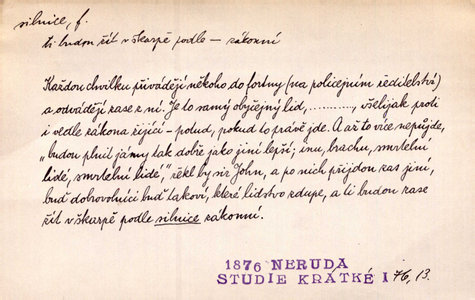 silnice, f.
ti budou žít v škarpě podle — zákonní
Každou chvilku přivádějí někoho do fortny (na policejním ředitelství)
a odvádějí zase z ní. Je to samý obyčejný lid, .........., všelijak proti
i vedle zákona žijící – potud, pokud to právě jde. A až to více nepůjde,
„budou plnit jámy tak dobře jako jiní lepší; inu, brachu, smrtelní
lidé, smrtelní lidé,“ řekl by sir John, a po nich přijdou zas jiní,
buď dobrovolníci buď takoví, které lidstvo zdupe, a ti budou zase
žít v škarpě podle silnice zákonní.
1876 NERUDA
STUDIE KRÁTKÉ I 76, 13.